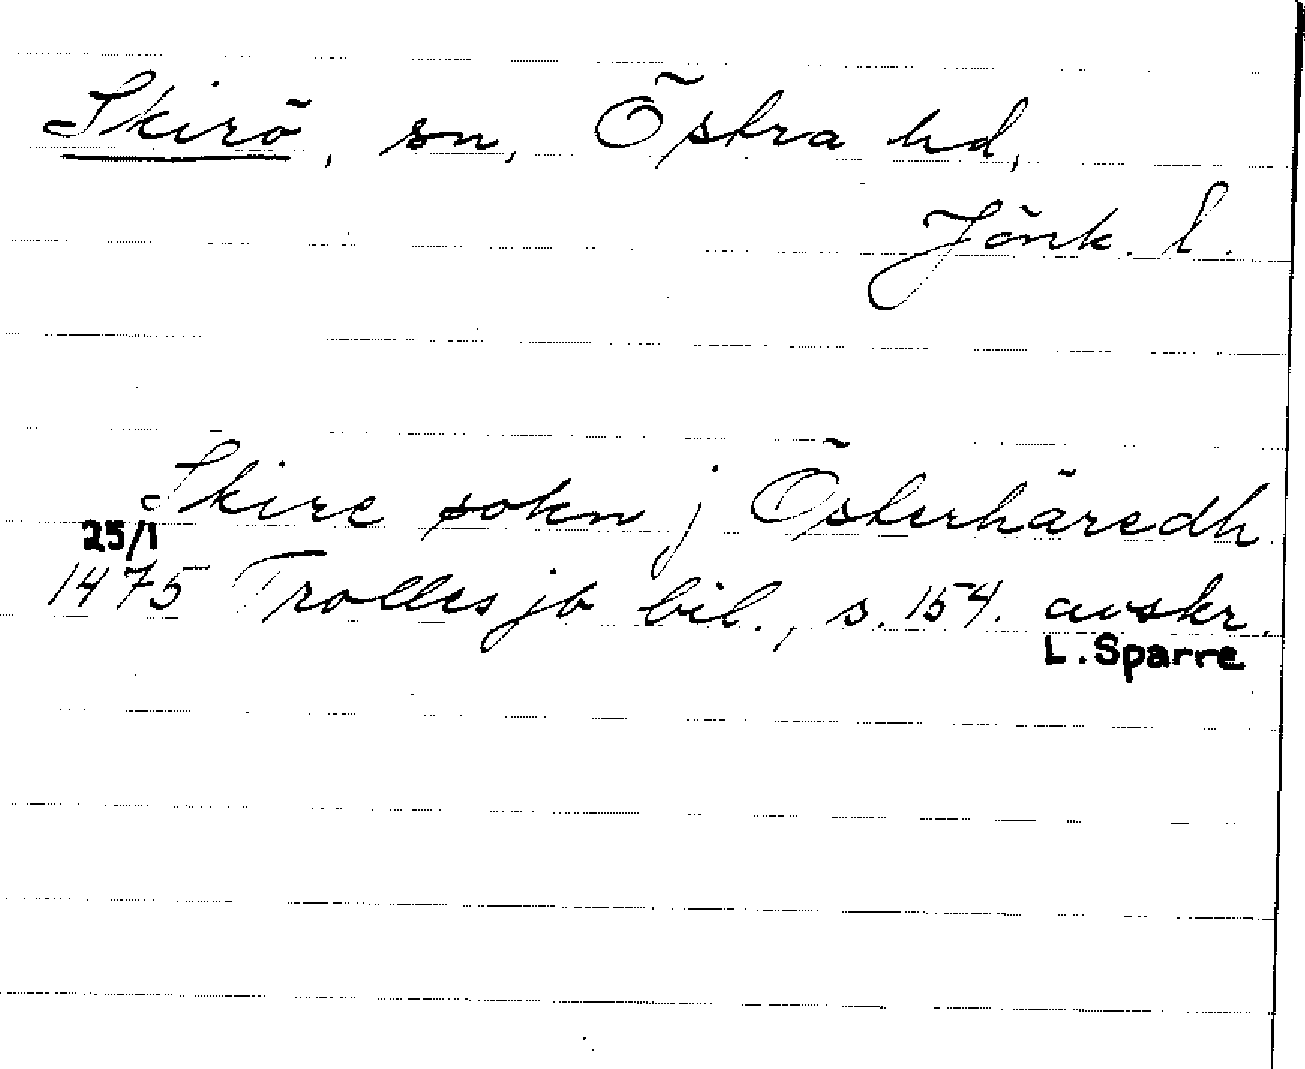 Skirö, sn, Östra hd,
Jönk. l.
Skire sokn j Österhäredh
25/1
1475 Trolles jb bil., s. 154. avskr.
L. Sparre